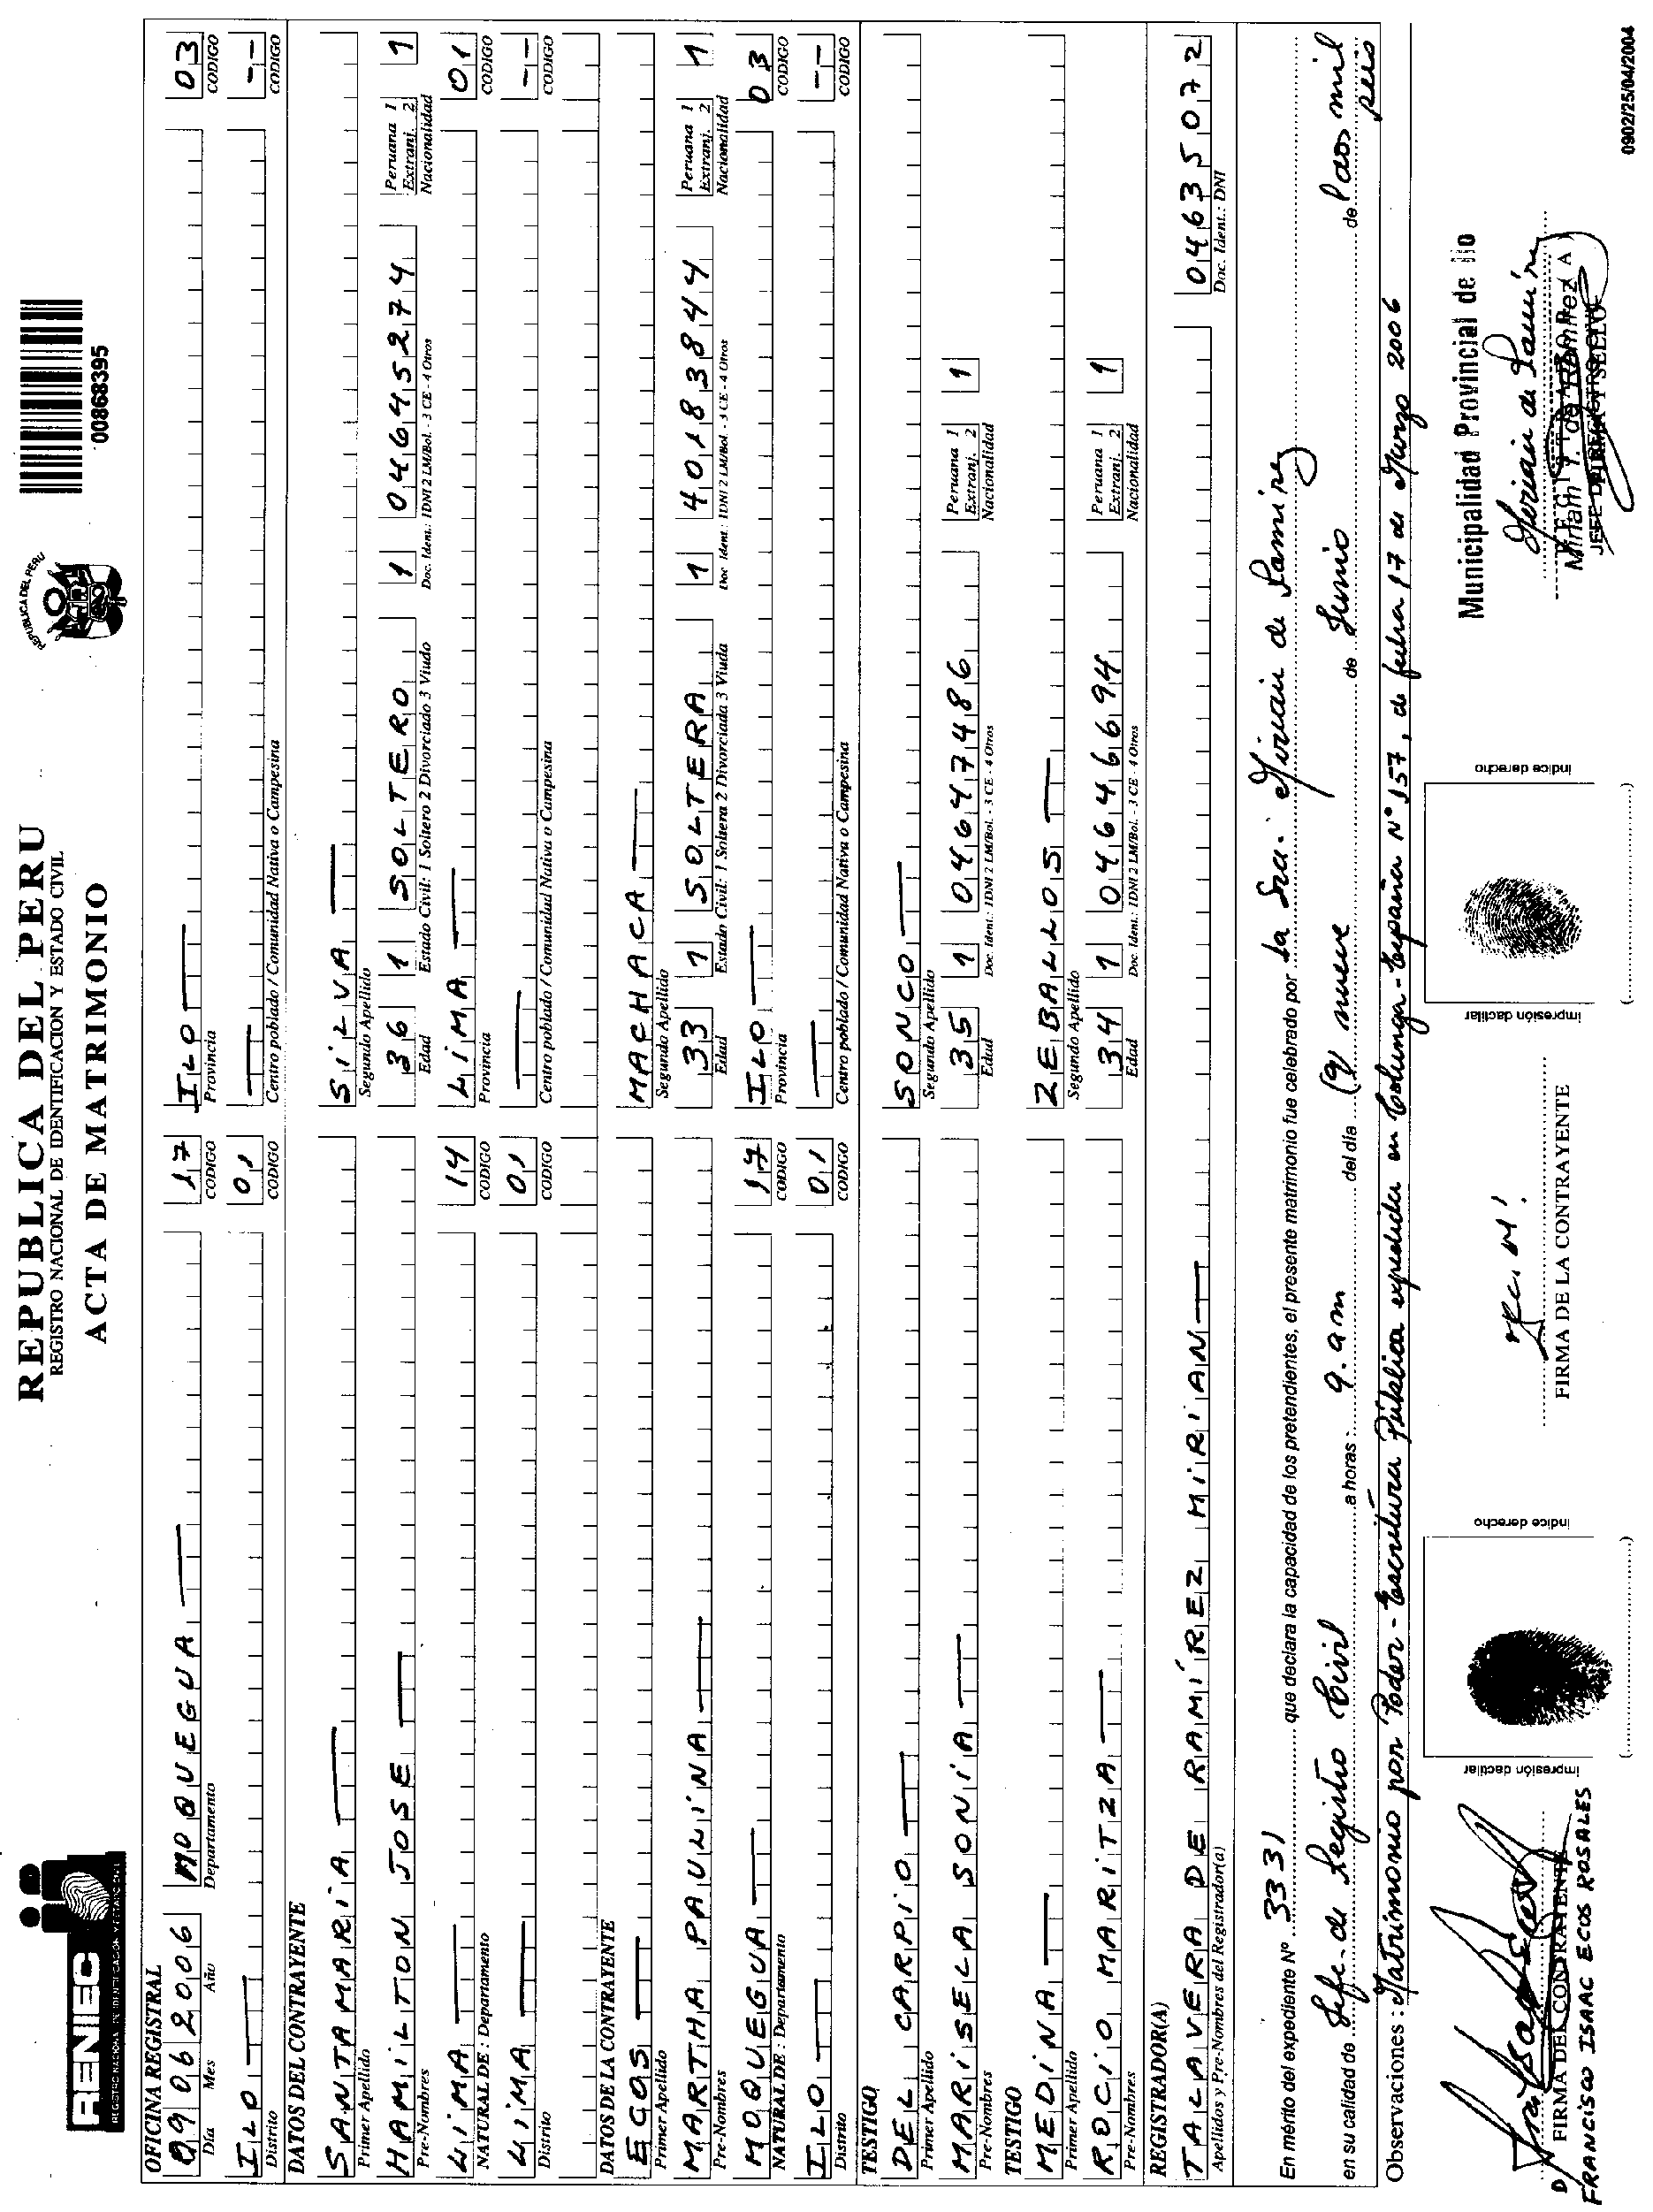 RENIEC
REGISTRO NACIONAL DE IDENTIFICACION Y ESTADO CIVIL
REPUBLICA DEL PERU
REGISTRO NACIONAL DE IDENTIFICACION Y ESTADO CIVIL
ACTA DE MATRIMONIO
REPUBLICA DEL PERU
00868395
OFICINA REGISTRAL
09 06 2006 MOQUEGUA 17 ILO 03
Día Mes Año Departamento CODIGO Provincia CODIGO
ILO 01 --
Distrito CODIGO Centro poblado / Comunidad Nativa o Campesina CODIGO
DATOS DEL CONTRAYENTE
SANTAMARIA SILVA
Primer Apellido Segundo Apellido
HAMILTON JOSE 36 1 SOLTERO 1 04645274 Peruana 1 Extranj. 2 1
Pre-Nombres Edad Estado Civil: 1 Soltero 2 Divorciado 3 Viudo Doc. Ident.: 1DNI 2 LM/Bol. - 3 CE - 4 Otros Nacionalidad
LIMA 14 LIMA 01
NATURAL DE : Departamento CODIGO Provincia CODIGO
LIMA 01 --
Distrito CODIGO Centro poblado / Comunidad Nativa o Campesina CODIGO
DATOS DE LA CONTRAYENTE
EGOS MACHACA
Primer Apellido Segundo Apellido
MARTHA PAULINA 33 1 SOLTERA 1 40183844 Peruana 1 Extranj. 2 1
Pre-Nombres Edad Estado Civil: 1 Soltera 2 Divorciada 3 Viuda Doc Ident.: 1DNI 2 LM/Bol. - 3 CE - 4 Otros Nacionalidad
MOQUEGUA 17 ILO 03
NATURAL DE : Departamento CODIGO Provincia CODIGO
ILO 01 --
Distrito CODIGO Centro poblado / Comunidad Nativa o Campesina CODIGO
TESTIGO
DEL CARPIO SONCO
Primer Apellido Segundo Apellido
MARISELA SONIA 35 1 04647486 Peruana 1 Extranj. 2 1
Pre-Nombres Edad Doc. Ident.: 1DNI 2 LM/Bol. - 3 CE - 4 Otros Nacionalidad
TESTIGO
MEDINA ZEBALLOS
Primer Apellido Segundo Apellido
ROCIO MARITZA 34 1 04646694 Peruana 1 Extranj. 2 1
Pre-Nombres Edad Doc. Ident.: 1DNI 2 LM/Bol. - 3 CE - 4 Otros Nacionalidad
REGISTRADOR(A)
TALAVERA DE RAMÍREZ MIRIAN 04635072
Apellidos y Pre-Nombres del Registrador(a) Doc. Ident.: DNI
En mérito del expediente Nº 3331 que declara la capacidad de los pretendientes, el presente matrimonio fue celebrado por la Sra. Mirian de Ramirez
en su calidad de Jefe de Registro Civil a horas: 9. am del día (9) nueve de Junio de dos mil seis
Observaciones : Matrimonio por Poder - Escritura Pública expedida en Colunga - España Nº 157, de fecha 17 de Marzo 2006
FIRMA DEL CONTRAYENTE
FRANCISCO ISAAC ECOS ROSALES
impresión dactilar
indice derecho
FIRMA DE LA CONTRAYENTE
impresión dactilar
indice derecho
Municipalidad Provincial de Ilo
Mirian de Ramirez
Miriam T. de Ramirez
JEFE DE REGISTRO CIVIL
0902/25/04/2004